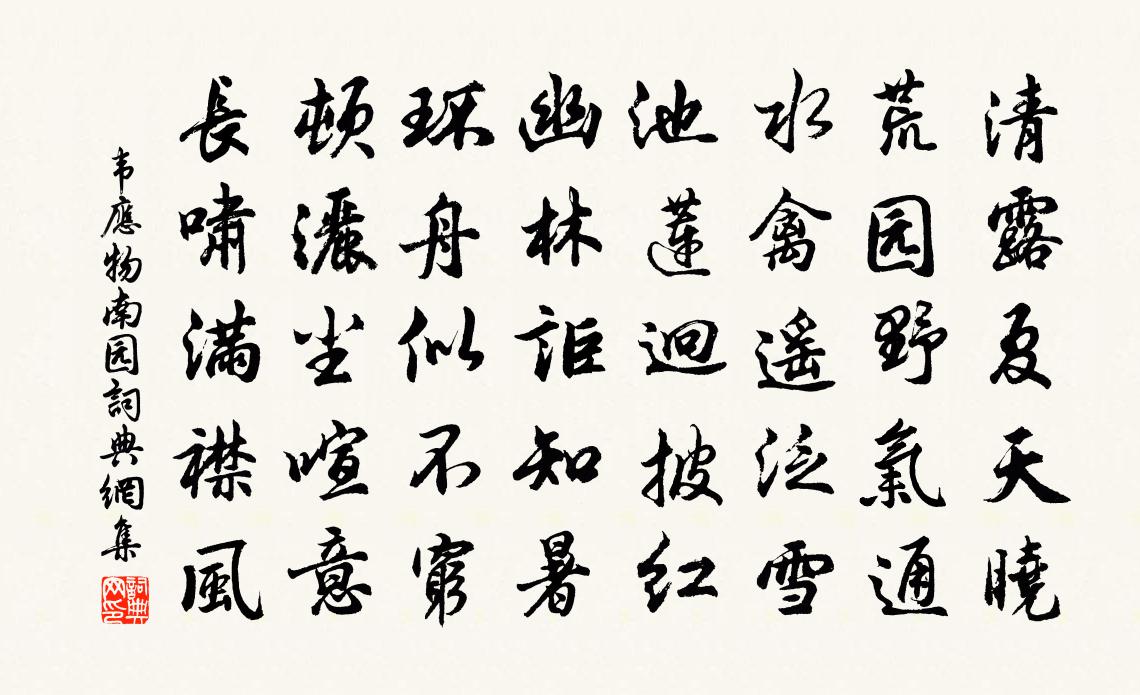 清露夏天曉
荒园野氣通
水禽遥泛雪
池蓮迥披红
幽林詎知暑
环舟似不窮
頓灑尘喧意
長嘯滿襟風
韦應物南园詞典網集
詞典网印